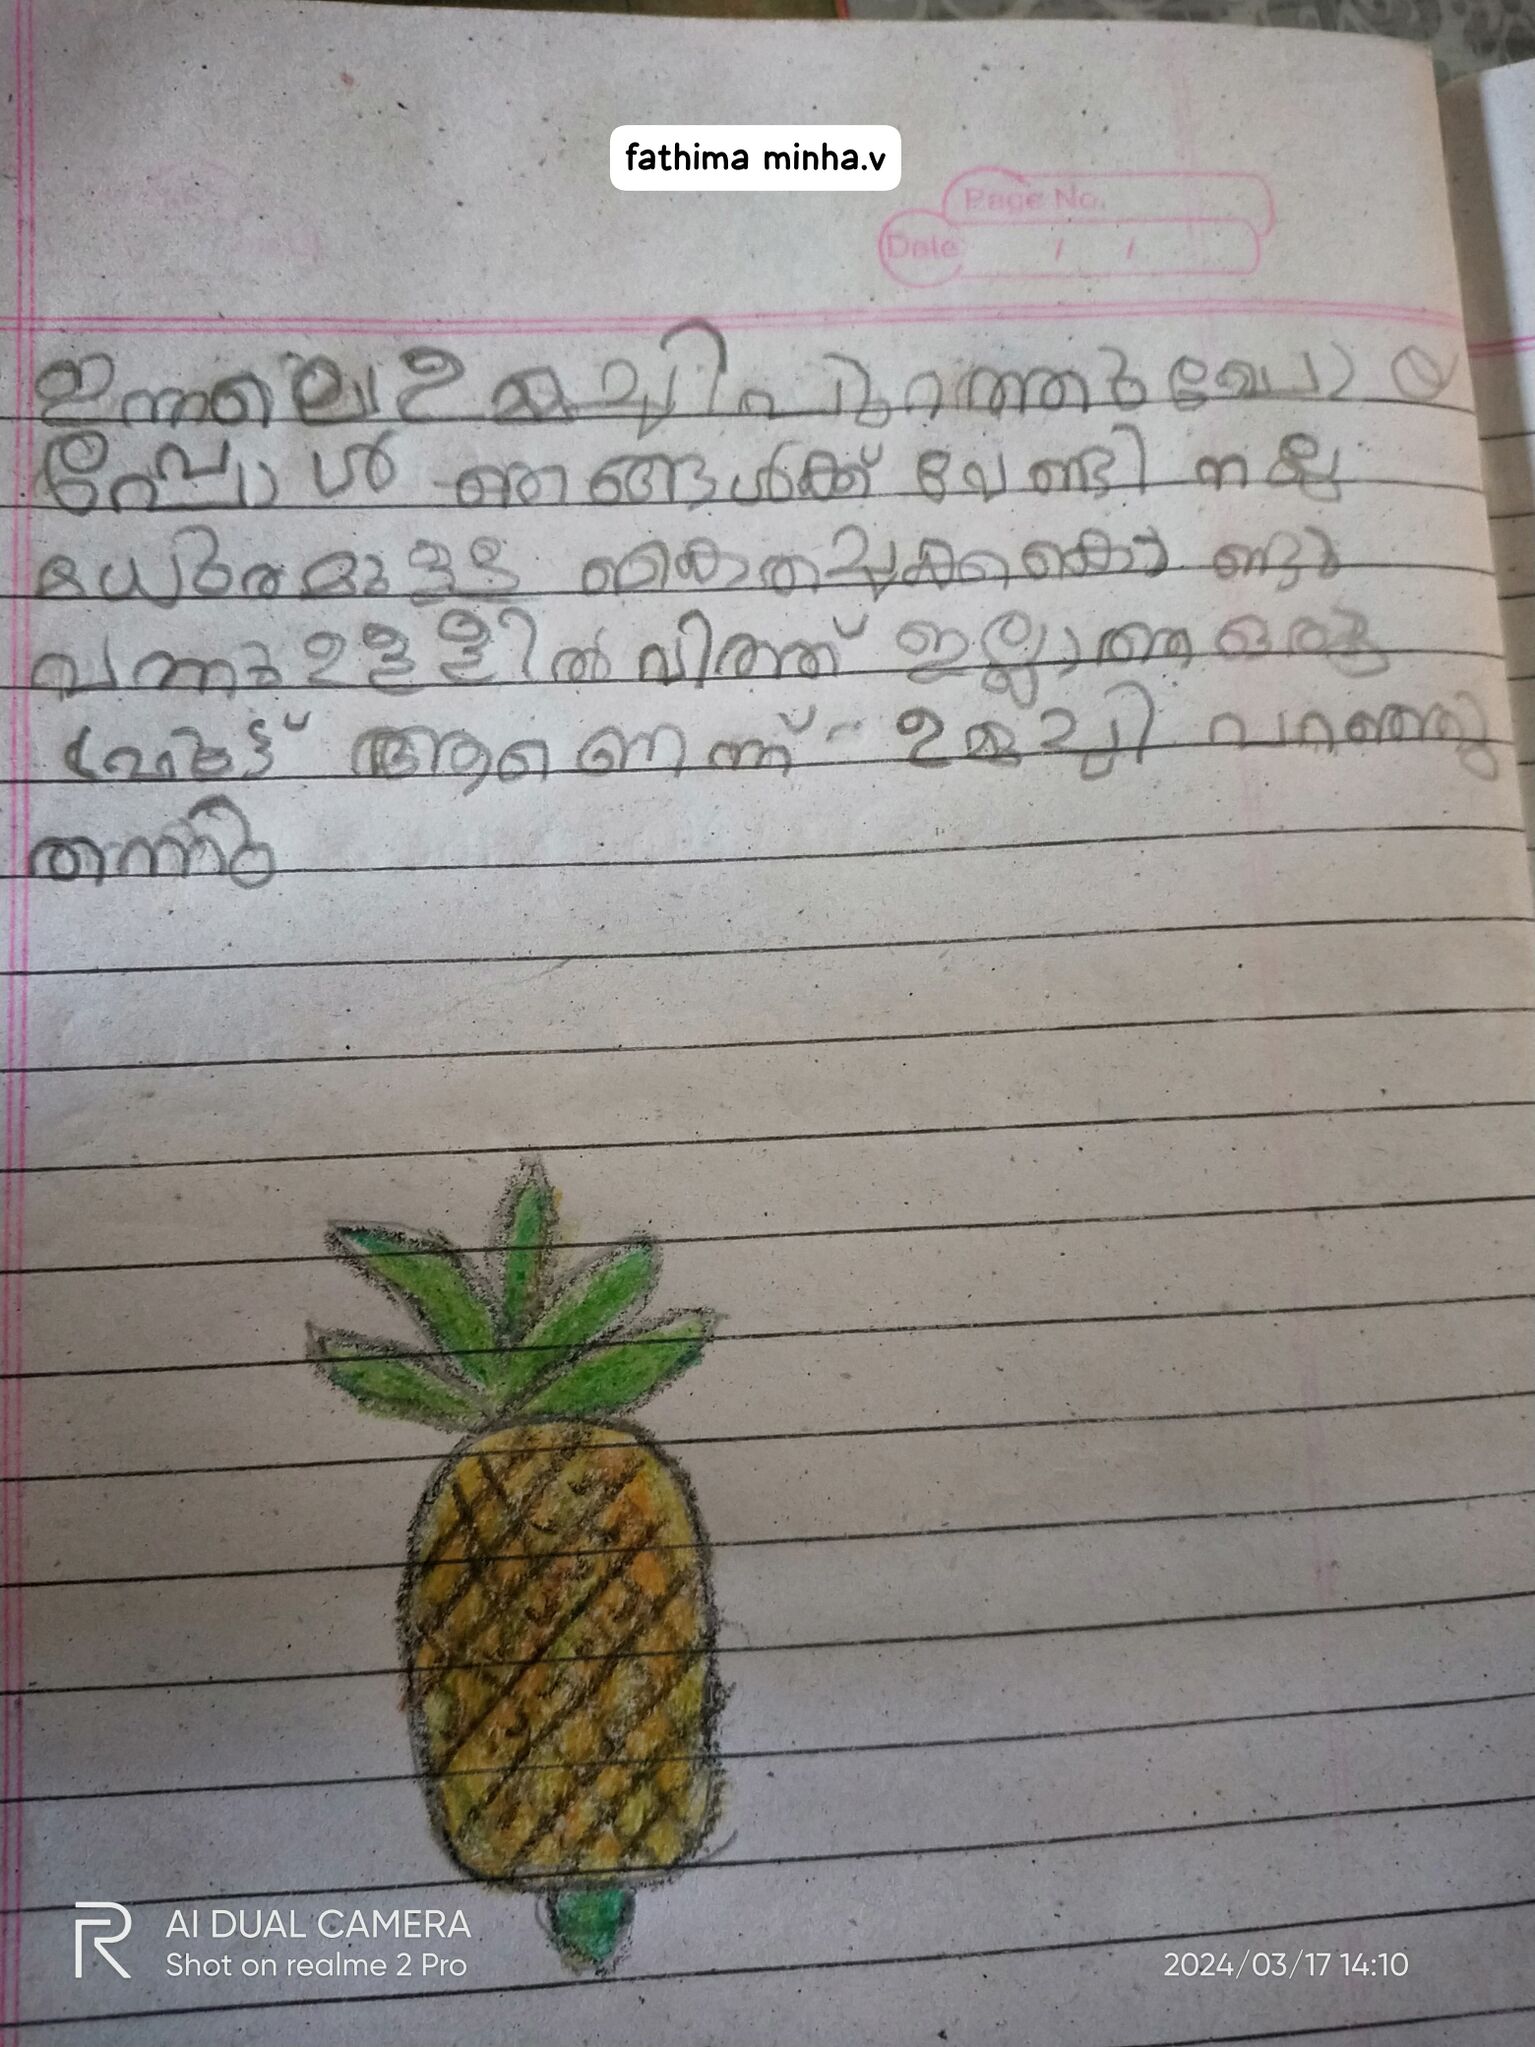 fathima minha.v
Page No.
Date / /
ഇന്നലെ ഉമ്മച്ചി പുറത്തു പോയ
പ്പോൾ ഞങ്ങൾക്ക് വേണ്ടി നല്ല
മധുരമുള്ള കൈതച്ചക്ക കൊണ്ടു
വന്നു ഉള്ളിൽ വിത്ത് ഇല്ലാത്ത ഒരു
ഫ്രൂട്ട് ആണെന്ന് ഉമ്മച്ചി പറഞ്ഞു
തന്നു
AI DUAL CAMERA
Shot on realme 2 Pro
2024/03/17 14:10